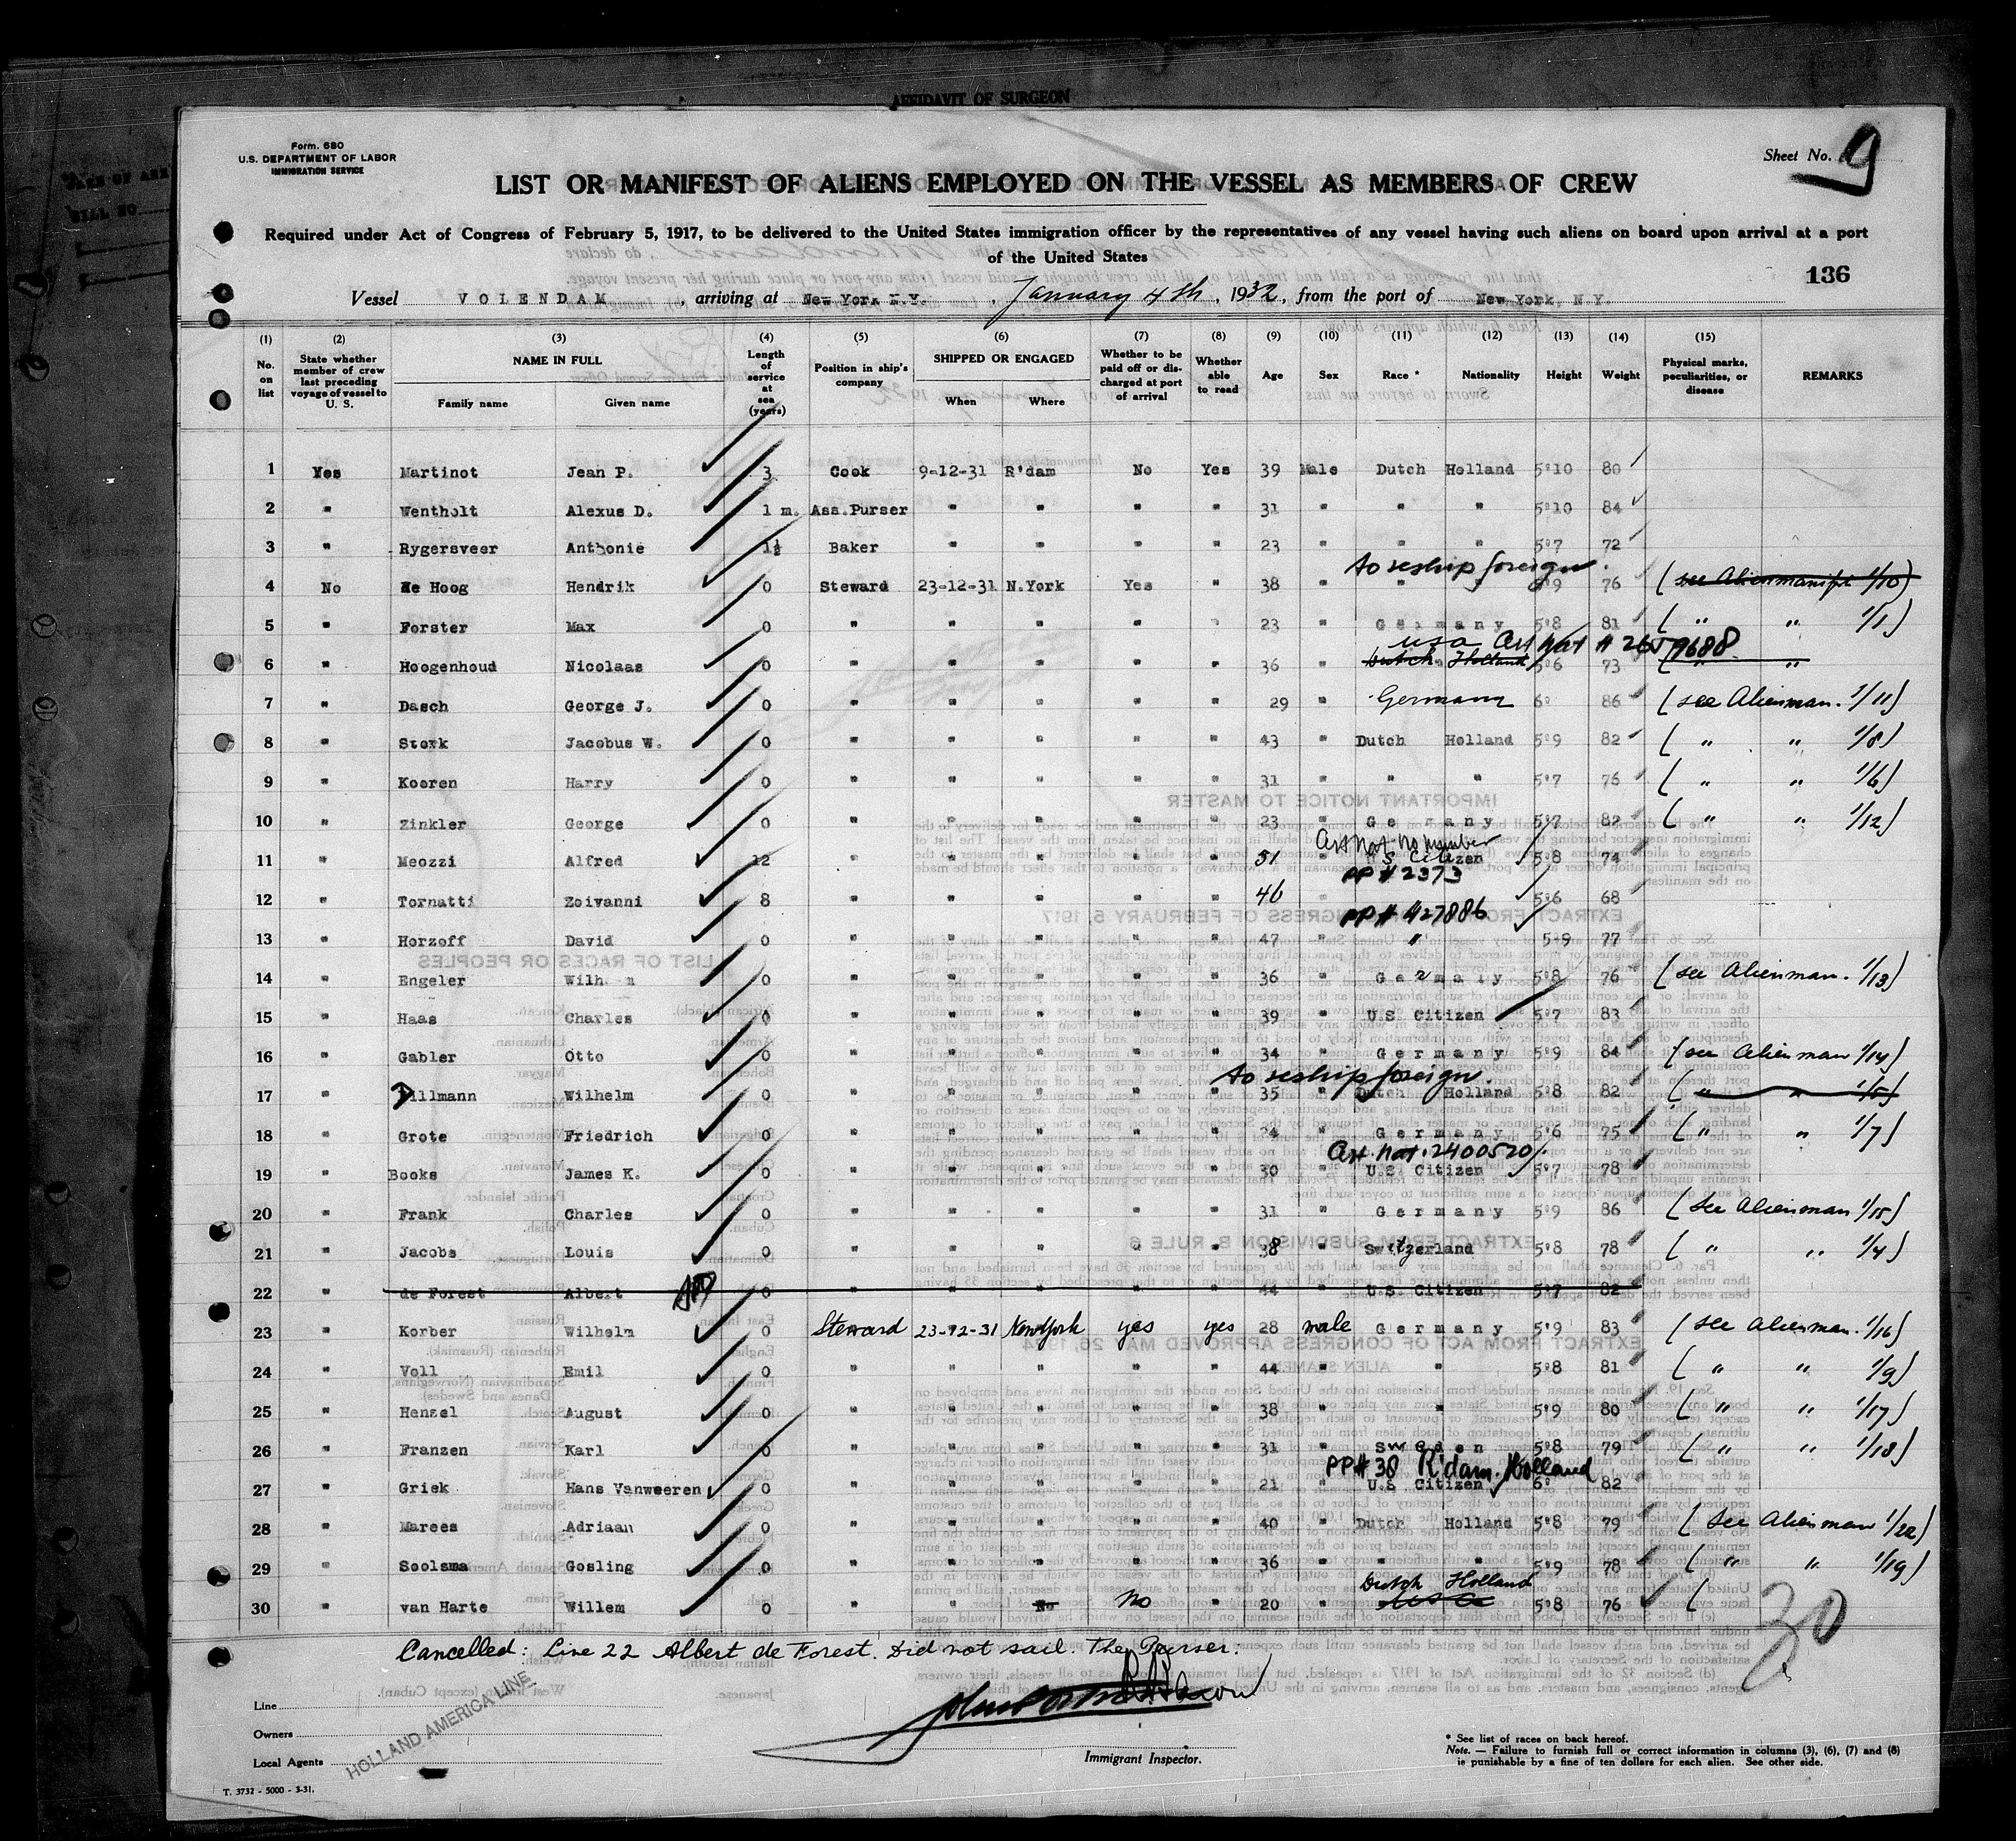 AFFIDAVIT OF SURGEON
Form. 680
U.S. DEPARTMENT OF LABOR
IMMIGRATION SERVICE
Sheet No. 9
LIST OR MANIFEST OF ALIENS EMPLOYED ON THE VESSEL AS MEMBERS OF CREW
Required under Act of Congress of February 5, 1917, to be delivered to the United States immigration officer by the representatives of any vessel having such aliens on board upon arrival at a port
of the United States
136
Vessel VOLENDAM, arriving at New York N.Y., January 4th, 1932, from the port of New York, N.Y.
(1) (2) (3) (4) (5) (6) (7) (8) (9) (10) (11) (12) (13) (14) (15)
No. on list State whether member of crew last preceding voyage of vessel to U. S. NAME IN FULL Family name Given name Length of service at sea (years) Position in ship's company SHIPPED OR ENGAGED When Where Whether to be paid off or discharged at port of arrival Whether able to read Age Sex Race * Nationality Height Weight Physical marks, peculiarities, or disease REMARKS
1 Yes Martinot Jean P. 3 Cook 9-12-31 R'dam No Yes 39 Male Dutch Holland 5'10 80
2 " Wentholt Alexus D. 1 m. Ass.Purser " " " " 31 " " " 5'10 84
3 " Rygersveer Anthonie 1½ Baker " " " " 23 " " " 5'7 72
to reship foreign.
4 No de Hoog Hendrik 0 Steward 23-12-31 N.York Yes " 38 " " " 5'9 76 (see Alienmanifst 1/10)
5 " Forster Max 0 " " " " " 23 " Germany 5'8 81 ( " " 1/1)
usa Cert Nat # 2659688
6 " Hoogenhoud Nicolaas 0 " " " " " 36 " Dutch Holland 5'6 73 ( " "
7 " Dasch George J. 0 " " " " " 29 " Germany 6' 86 (see Alienman. 1/11)
8 " Stork Jacobus W. 0 " " " " " 43 " Dutch Holland 5'9 82 ( " " 1/8)
9 " Kooren Harry 0 " " " " " 31 " " " 5'7 76 ( " " 1/6)
10 " Zinkler George 0 " " " " " 23 " Germany 5'7 82 ( " " 1/12)
Cert Nat. No number
11 " Meozzi Alfred 12 " " " " " 51 " U S Citizen 5'8 74
PP # 2373
12 " Tornatti Zoivanni 8 " " " " " 46 " 5'6 68
PP # 427886
13 " Horzoff David 0 " " " " " 47 " " 5'9 77
14 " Engeler Wilh n 0 " " " " " 36 " Germany 5'8 76 (see Alienman. 1/13)
15 " Haas Charles 0 " " " " " 39 " U.S. Citizen 5'7 83
16 " Gabler Otto 0 " " " " " 34 " Germany 5'9 84 (see Alienman 1/14)
to reship foreign.
17 " illmann Wilhelm 0 " " " " " 35 " Dutch Holland 5'8 82 ( " " 1/5)
18 " Grote Friedrich 0 " " " " " 24 " Germany 5'6 75 ( " " 1/7)
Cert. Nat. 2400520
19 " Books James K. 0 " " " " " 30 " U.S. Citizen 5'7 78
20 " Frank Charles 0 " " " " " 31 " Germany 5'9 86 (See Alienman 1/15)
21 " Jacobs Louis 0 " " " " " 38 " Switzerland 5'8 78 ( " " 1/4)
22 " de Forest Albert 0 " " " " " 44 " U.S. Citizen 5'7 82
23 " Korber Wilhelm 0 Steward 23-12-31 New York yes yes 28 male Germany 5'9 83 (see Alienman. 1/16)
24 " Voll Emil 0 " " " " " 44 " " 5'8 81 ( " " 1/9)
25 " Henzel August 0 " " " " " 38 " " 5'9 80 ( " " 1/17)
26 " Franzen Karl 0 " " " " " 31 " Sweden 5'8 79 ( " " 1/18)
PP# 38 R'dam. Holland
27 " Griek Hans Vanweeren 0 " " " " " 21 " U.S Citizen 6' 82
28 " Marees Adriaan 0 " " " " " 40 " Dutch Holland 5'8 79 (See Alienman 1/20)
29 " Soolsma Gosling 0 " " " " " 36 " " " 5'9 78 ( " " 1/19)
Dutch Holland
30 " van Harte Willem 0 " " No No " 20 " 5'8 76 (
30
Cancelled: Line 22 Albert de Forest. Did not sail. The Purser:
Line
Owners
Local Agents
HOLLAND AMERICA LINE
Immigrant Inspector.
* See list of races on back hereof.
Note. — Failure to furnish full or correct information in columns (3), (6), (7) and (8)
is punishable by a fine of ten dollars for each alien. See other side.
T. 3732 - 5000 - 3-31.